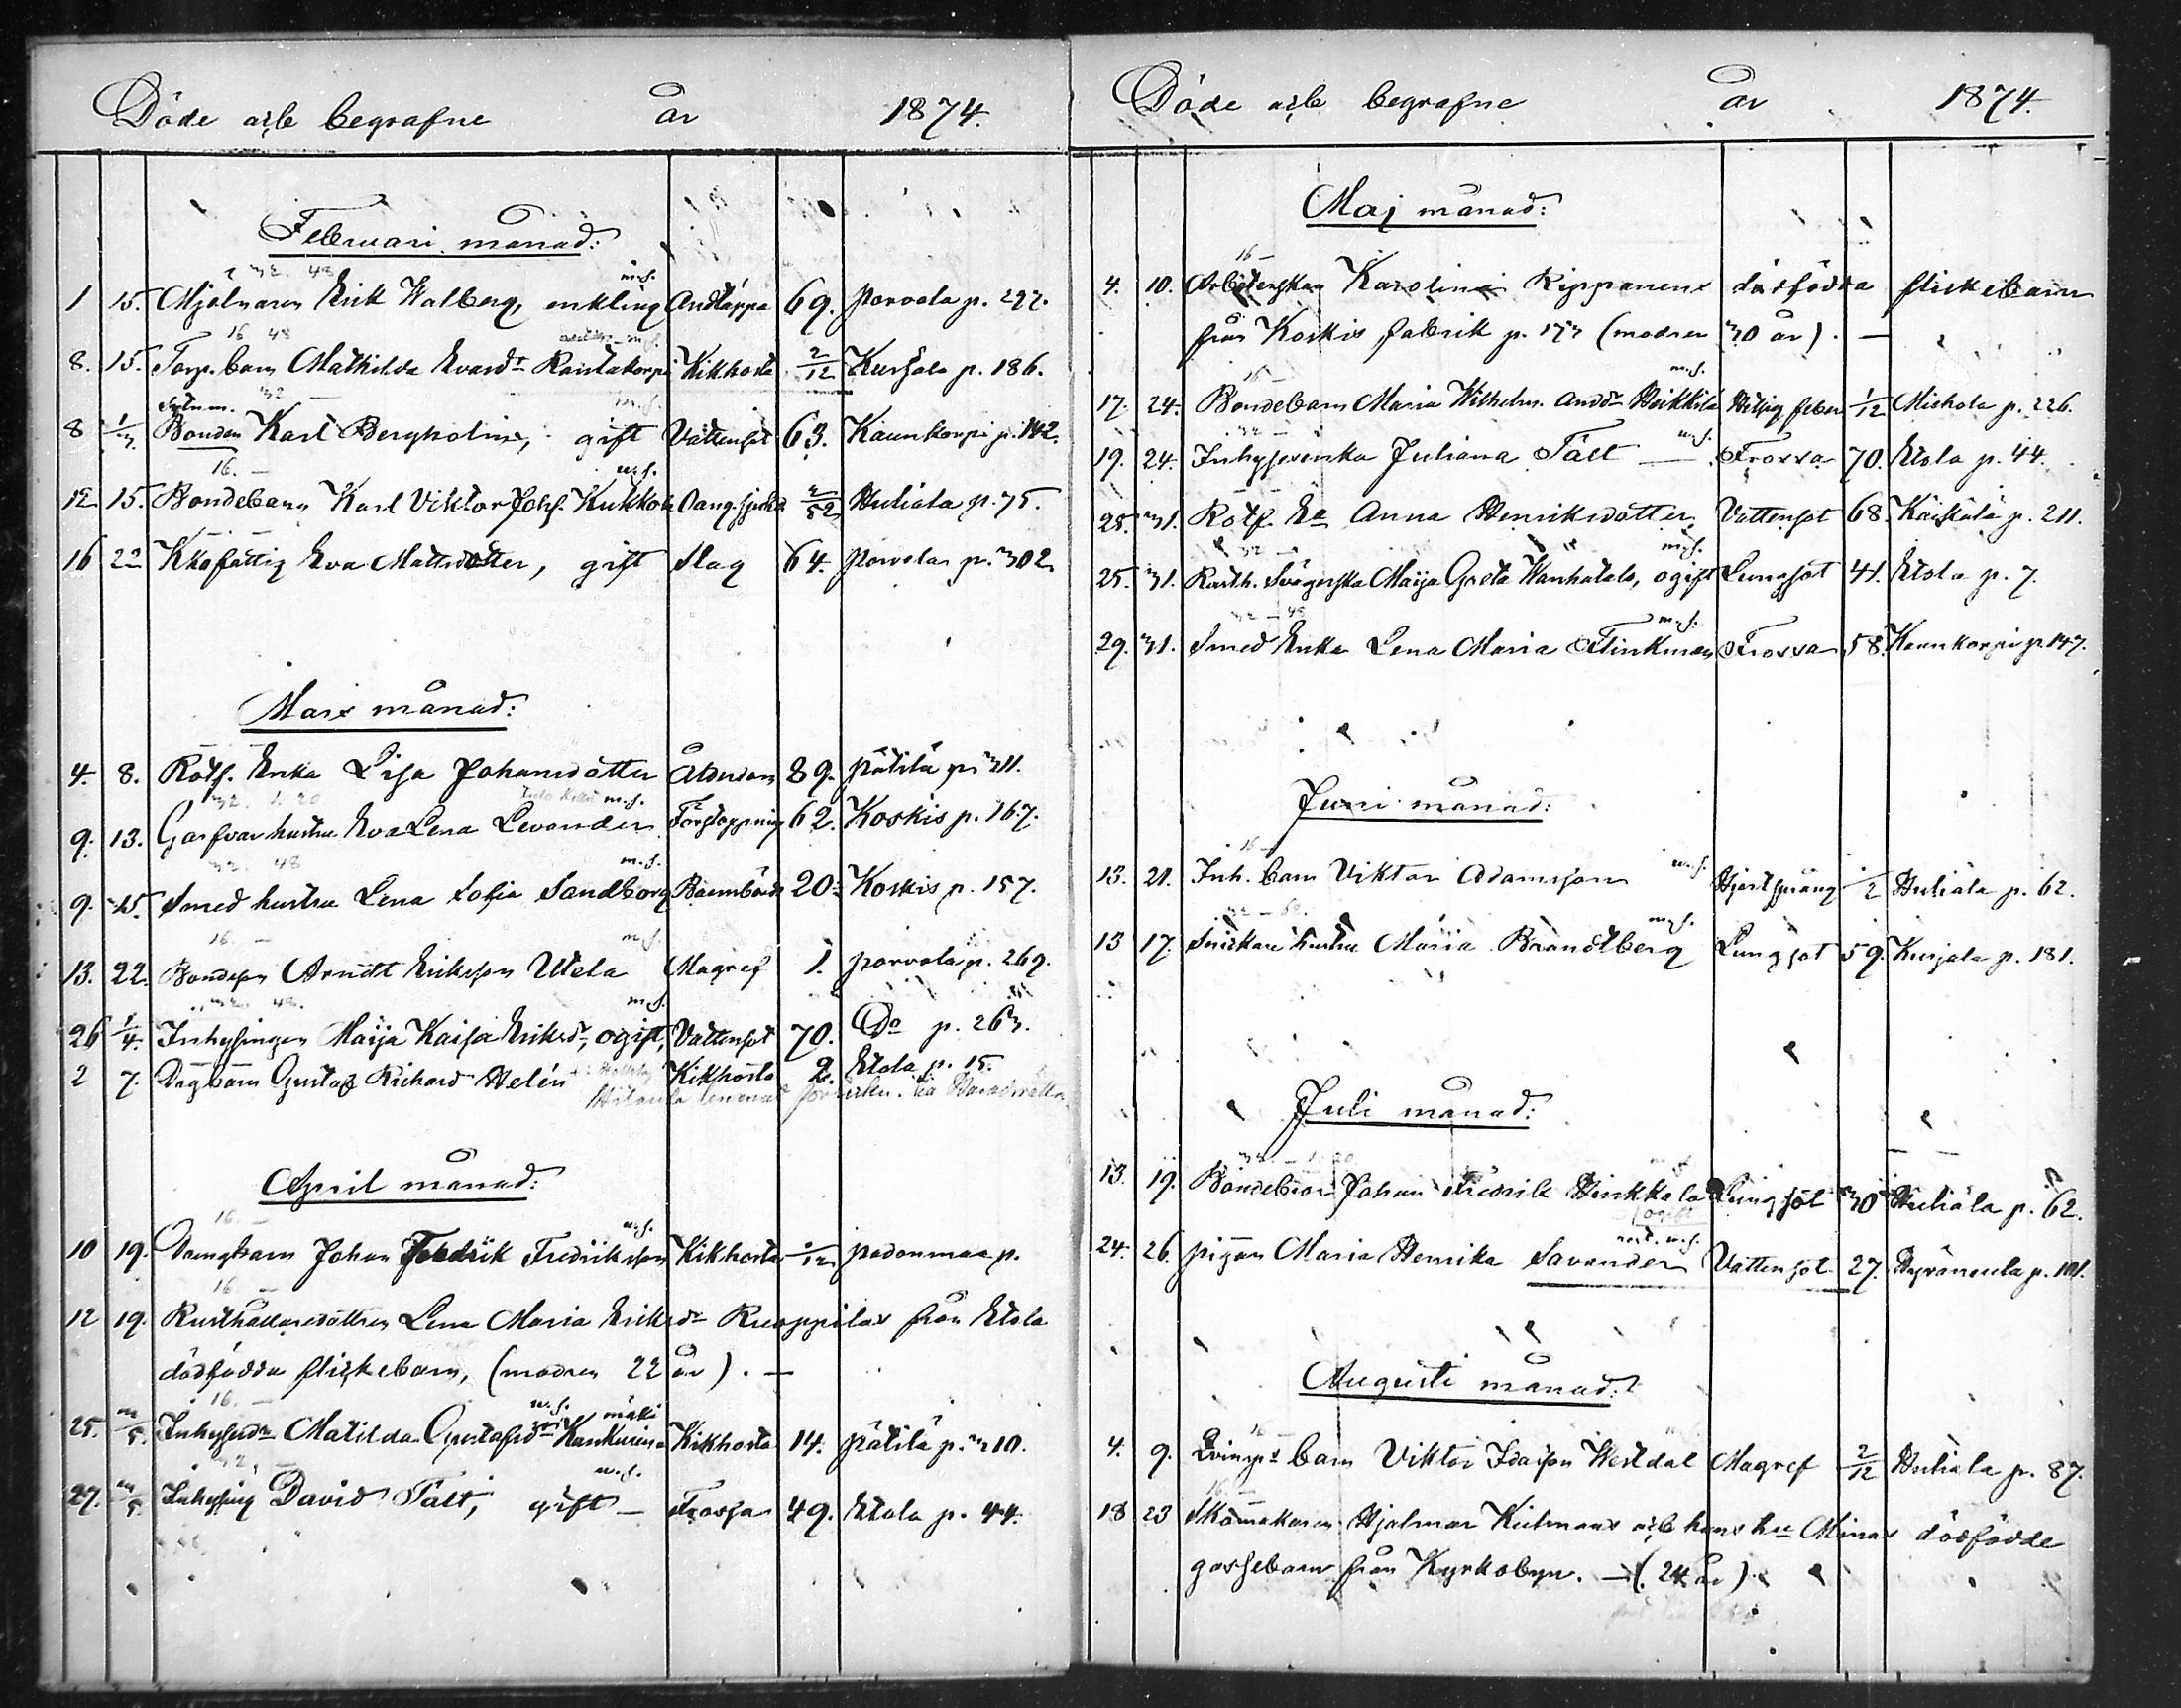 Döde och begrafne år 1874.
Februari månad:
1 15. Mjölnaren Erik Walberg, enkling Andtäppa 69. Porvola p. 297.
8. 15. Torp. barn Mathilda Evardsdr Raistakorpi Kikhosta 2/12 Kurjala p. 186.
Sytn.m.
8 1/3. Bonden Karl Bergholm, gift Vattensot 63. Kaunkorpi p. 142.
12 15. Bondebarn Karl Viktor Johs. Kukkola 2/52 Huljala p. 75.
16 22 Kkofattig Eva Mattsdotter, gift Slag 64. Porvola p. 302.
Mars månad:
4. 8. Rotf. Enka Lisa Johansdotter Ålderdom 89. Pätilä p. 311.
9. 13. Garfvar hustru Eva Lena Levander Förstoppning 62. Koskis p. 167.
9. 15. Smed hustru Lena Sofia Sandborg Barnsbörd 20. Koskis p. 157.
13. 22. Bondeson Arndt Eriksson Utela Magref 1. Porvola p. 269.
26 1/4. Inhysingen Maija Kaisa Eriksdr, ogift, Vattensot 70. Do p. 263.
2 7. Dagbarn Gustaf Richard Helén Kikhosta 2. Etola p. 15.
April månad:
10 19. Drängbarn Johan Fredrik Fredriksson Kikhosta /12 Padonmaa p.
12 19. Rusthållaredottren Lena Maria Eriksdr Ruoppilas från Etola
dödfödda flickebarn, (modren 22 år). —
25. 3/5. Inhysesdr Matilda Gustafsdr Kankurinmäki Kikhosta 14. Pätilä p. 310.
27. 3/5. Inhysing David Tält, gift — Frossa 49. Etola p. 44.
Döde och begrafne år 1874.
Maj månad:
4. 10. Arbeterskan Karolina Rippanens dödfödda flickebarn
från Koskis fabrik p. 173 (modren 30 år). —
17. 24. Bondebarn Maria Wilhelm. Andsdr Heikkilä Hetsig feber 1/12 Miehola p. 226.
19. 24. Inhysesenka Juliana Tält — Frossa 70. Etola p. 44.
25. 31. Rotf. Ea Anna Henriksdotter Vattensot 68. Käikälä p. 211.
25. 31. Rusth. Svägerska Maija Greta Wanhatalo, ogift Lungsot 41. Etola p. 7.
29. 31. Smed Enka Lena Maria Flinkman Frossa 58. Kaunkorpi p. 147.
Juni månad:
13. 21. Inh. barn Viktor Adamsson Hjertsprång 1/2 Huljala p. 62.
13 17. Snickare hustru Maria Brandtberg Lungsot 59. Kurjala p. 181.
Juli månad:
13. 19. Johan Fredrik Hinkkala Lungsot 30 Huljala p. 62.
ogift
24. 26. Pigan Maria Henrika Savander Vattensot 27. p. 101.
Augusti månad:
4. 9. barn Viktor Idasson Westdal Magref 2/12 Huljala p. 87.
18 23 Skomakaren Hjalmar Kulmans och hans hu Minas dödfödde
gossebarn från Kyrkobyn. — (24 år).